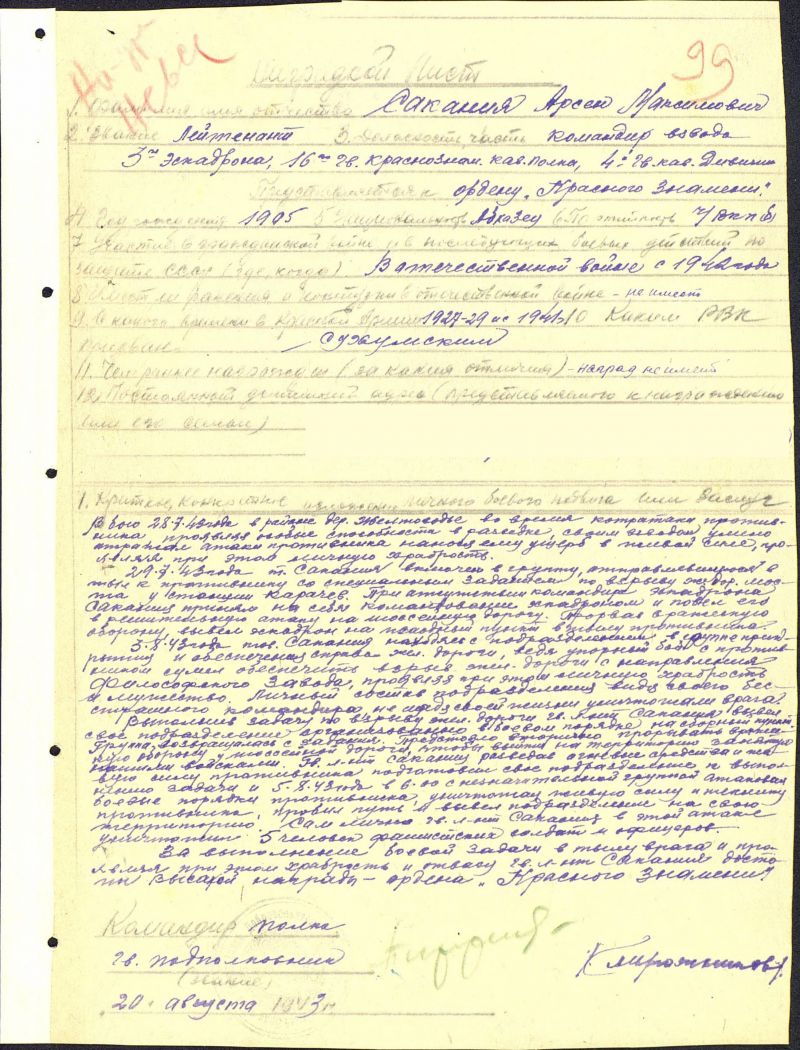 99
Наградной Лист
1. Фамилия имя отчество Сакания Арсен Максимович
2. Звание Лейтенант 3. Должность часть командир взвода
3го Эскадрона, 16го Гв. Краснознам. кав. полка, 4й Гв. кав. Дивизии
Представляется к ордену „Красного Знамени."
4 Год рождения 1905 5 Национальность Абхазец 6 Партийность Ч/ВКП(б)
7 Участие в гражданской войне и в последующих боевых действий по
защите СССР (где, когда). В отечественной войне с 1942 года
8 Имеет ли ранения и контузии в отечественной войне - не имеет
9. С какого времени в Красной Армии 1927-29 и с 1941 10 Каким РВК
призван Сухумским
11. Чем ранее награжден (за какия отличия) - наград не имеет
12. Постоянный домашний адрес (представляемого к награждению
или его семьи)
1. Краткое, конкретное изложение личного боевого подвига или заслуг
В бою 28.7.43 года в районе дер. Желтоводье во время контратаки против-
ника проявляя особые способности в разведке, своим взводом умело
отражал атаки противника нанося ему ущерб в живой силе, про-
являя при этом личную храбрость.
29.7.43 года т. Сакания включен в группу, отправляющуюся в
тыл к противнику со специальным заданием по взрыву ж. дор. мос-
та у станции Карачев. При отсутствии командира эскадрона
Сакания принял на себя командование эскадроном и повел его
в решительную атаку на шоссейную дорогу. Прорвав вражескую
оборону, вывел эскадрон на исходный пункт в тылу противника.
3.8.43 года тов. Сакания находясь с подразделением в группе прик-
рытия и обеспечения справа жел. дороги, ведя упорный бой с против-
ником сумел обеспечить взрыв жел. дороги с направления
Завода, проявляя при этом личную храбрость
и мужество. Личный состав подразделения видя своего бес-
страшного командира, не щадя своей жизни уничтожали врага.
Выполнив задачу по взрыву жел. дороги гв. л-нт Сакания вывел
свое подразделение организованно в боевом порядке на сборный пункт.
Группа, возвращалась с задания. Предстояло вторично прорывать вражес-
кую оборону у шоссейной дороги, чтобы выйти на территорию занятую
нашими войсками. Гв. л-нт Сакания разведав огневые средства и жи-
вую силу противника подготовил свое подразделение к выпол-
нению задачи и 5.8.43 года в 6.00 с незначительной группой атаковал
боевые порядки противника, уничтожая живую силу и технику
противника, пробил путь и вывел подразделение на свою
территорию. Сам лично гв. л-нт Сакания в этой атаке
уничтожил 5 человек фашистских солдат и офицеров.
За выполнение боевой задачи в тылу врага и про-
являя при этом храбрость и отвагу гв. л-нт Сакания досто-
ин высокой награды - ордена „Красного Знамени"
Командир полка
гв. подполковник
(звание)
20 августа 1943 г.